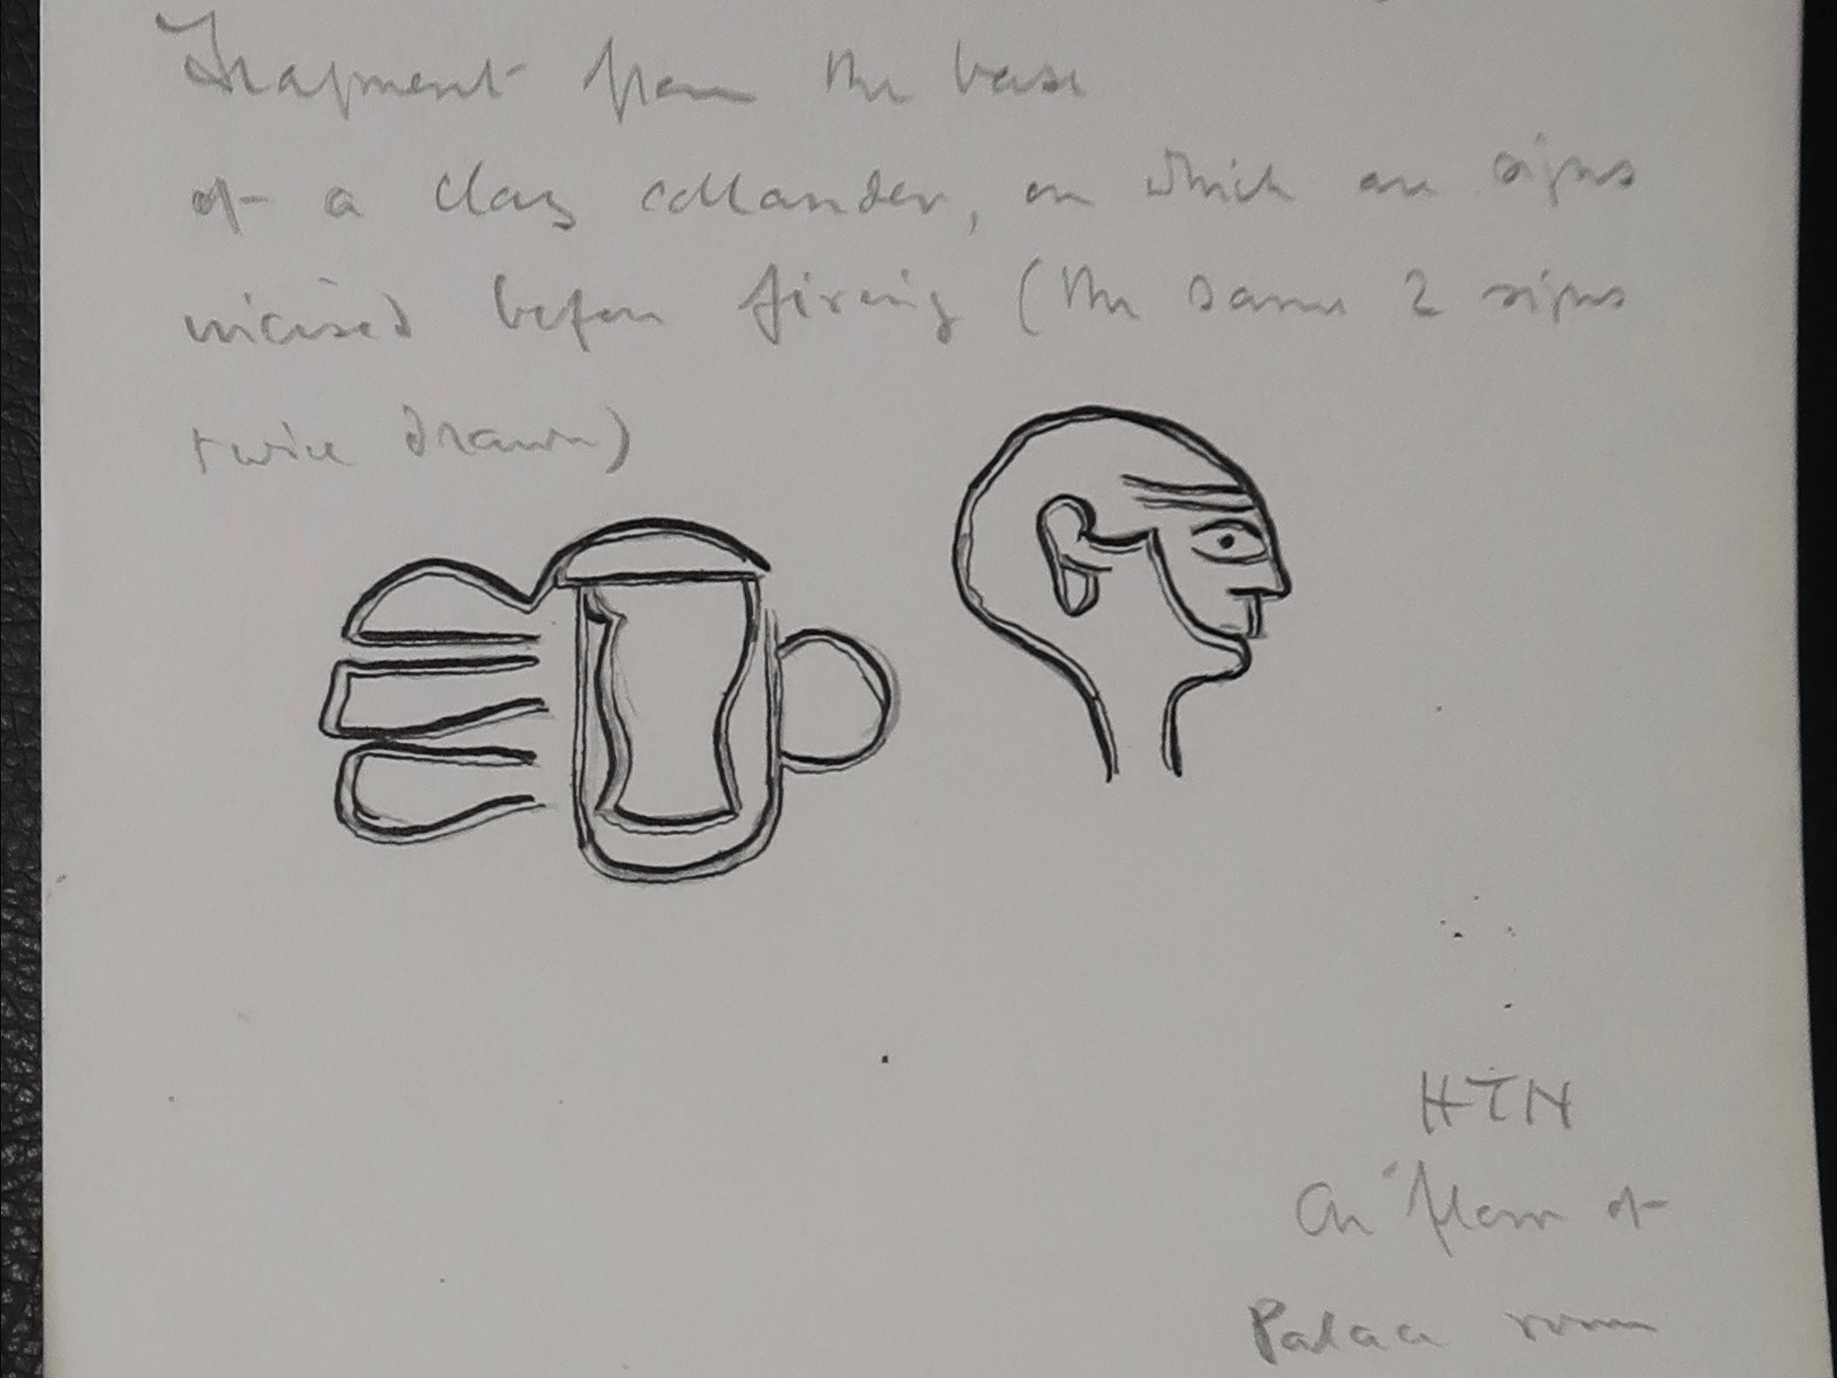 Fragment from the base
of a clay collander, on which are signs
incised before firing (the same 2 signs
twice drawn)
HTN
On floor of
Palace room